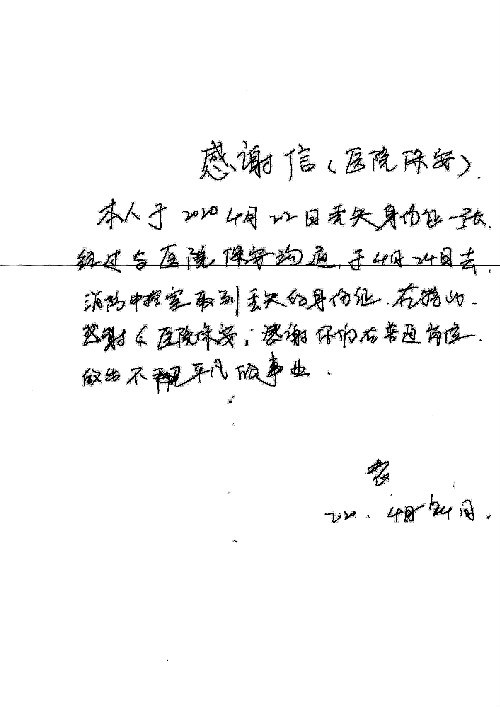 感谢信（医院保安）.
本人于2020 4月22日丢失身份证一张.
经过与医院保安沟通,于4月24日去
消防中控室取到丢失的身份证.在特此
感谢《医院保安;感谢你们在普通岗位.
做出不平凡的事业.
220.4月24日.